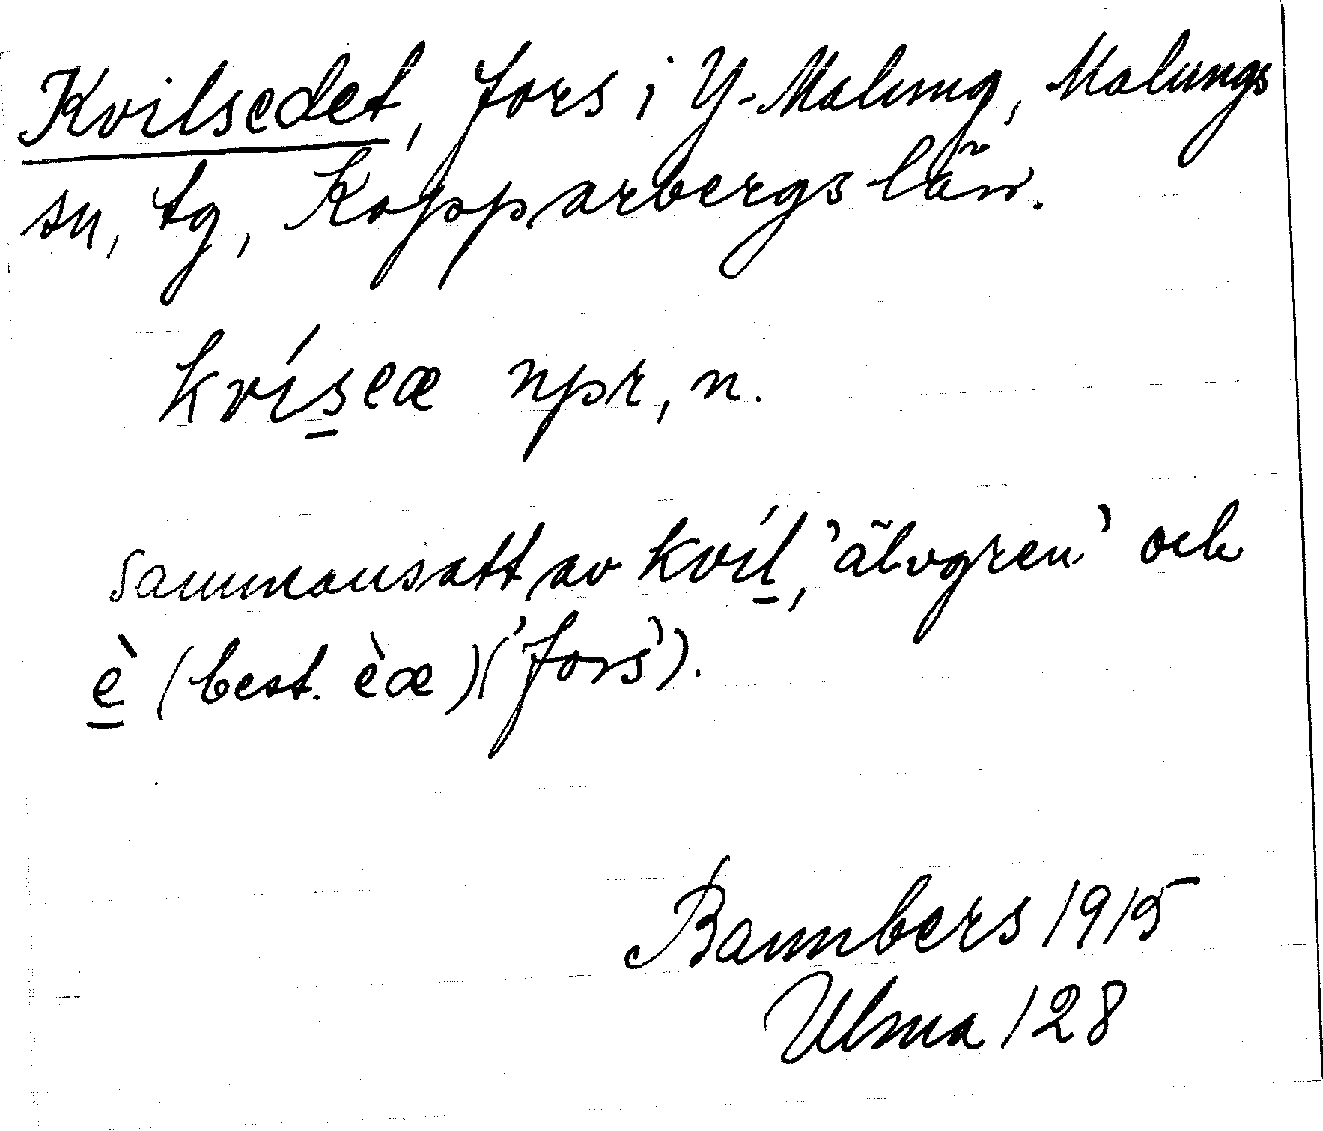 Kvilsedet, fors i Y-Malung, Malungs
sn, tg, Kopparbergs län.
kvíseæ npr, n.
Sammansatt av kvíl, 'älvgren' och
è (best. èæ) ('fors').
Bannbers 1915
Ulma 128